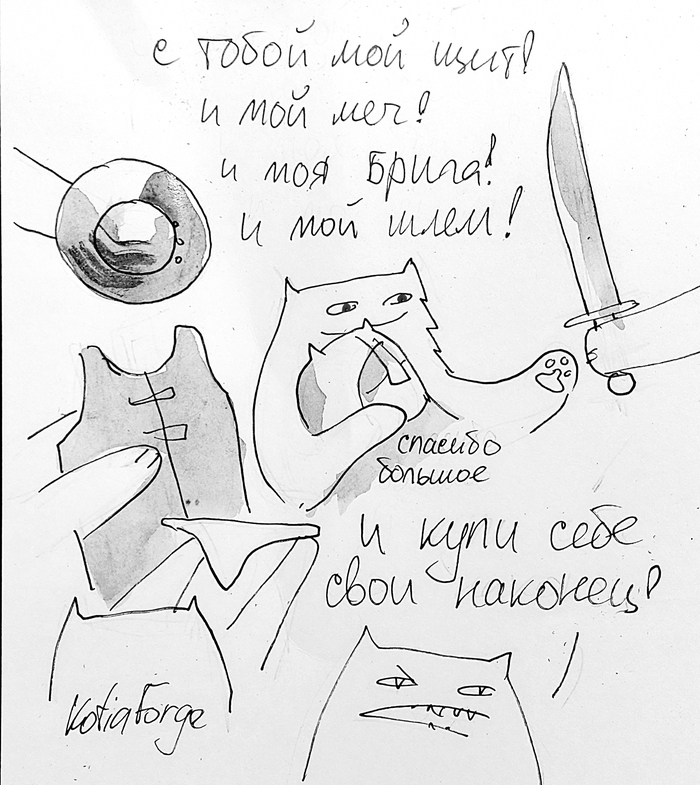 с тобой мой щит!
и мой меч!
и моя брига!
и мой шлем!
спасибо
большое
и купи себе
свои наконец!
KotiaForge